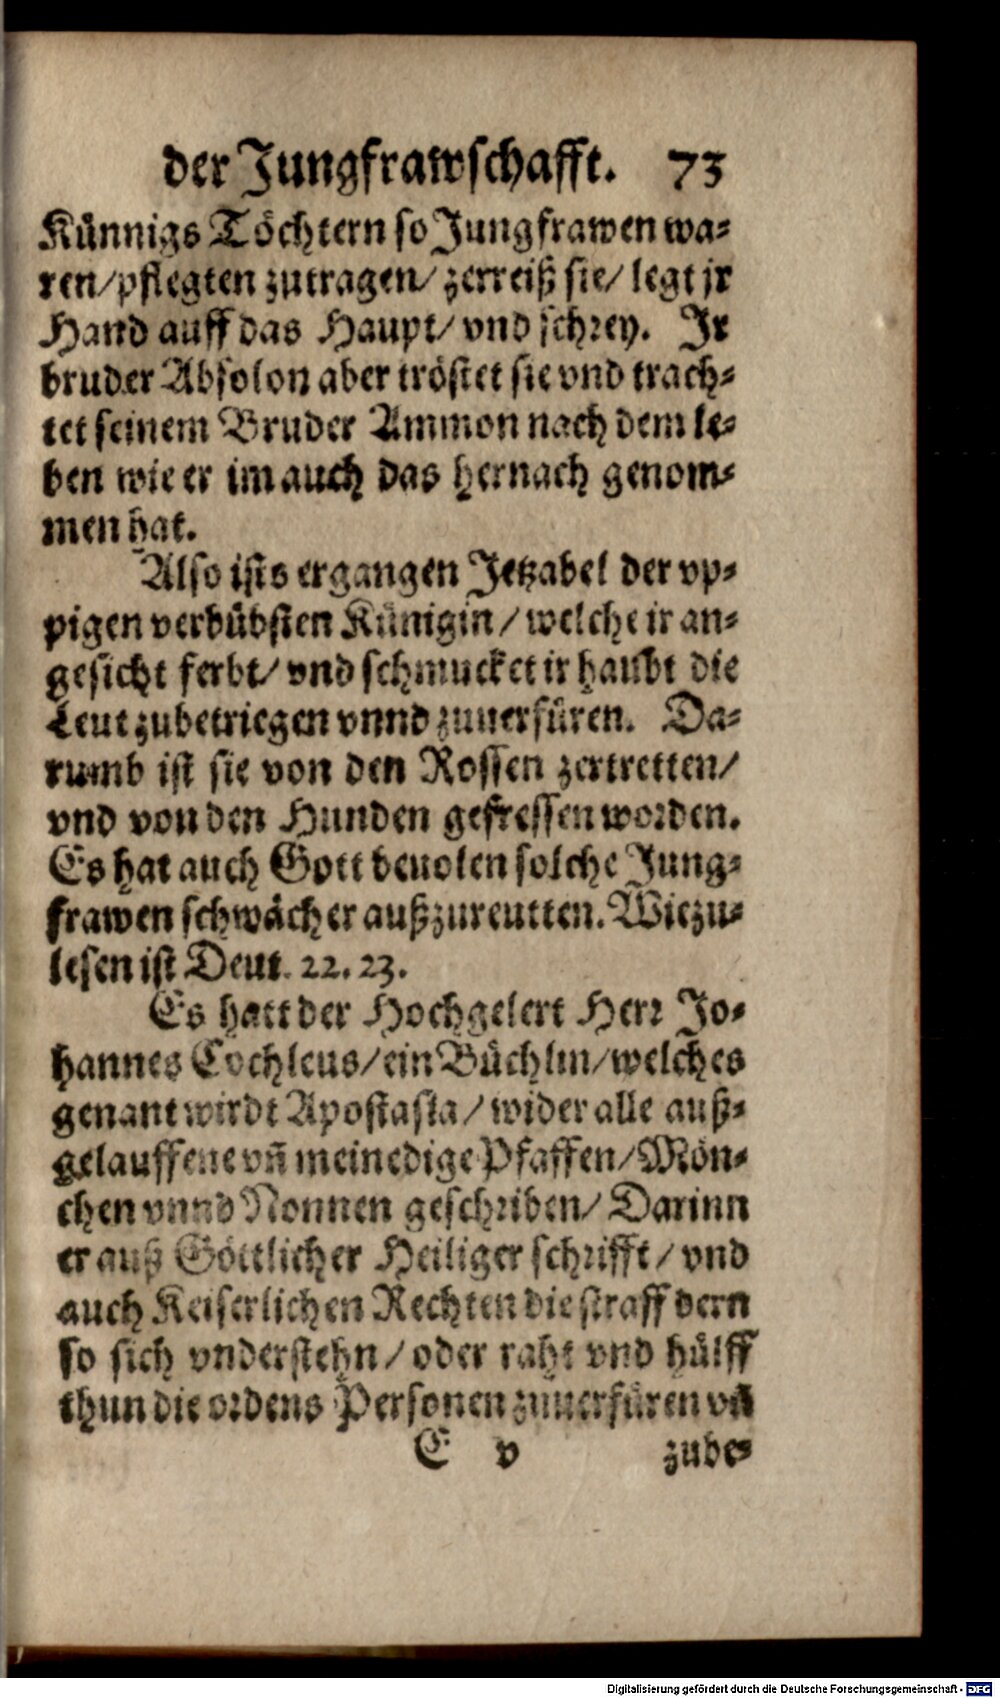 der Jungfrawschafft. 73
Künnigs Töchtern so Jungfrawen wa-
ren/pflegten zutragen/ zerreiß sie/ legt jr
Hand auff das Haupt/ vnd schrey. Jr
bruder Absolon aber tröstet sie vnd trach-
tet seinem Bruder Ammon nach dem le-
ben wie er im auch das hernach genom-
men hat.
Also ists ergangen Jetzabel der vp-
pigen verbübsten Künigin/ welche ir an-
gesicht ferbt/ vnd schmucket ir haubt die
Leut zubetriegen vnnd zuuerfüren. Da-
rumb ist sie von den Rossen zertretten/
vnd von den Hunden gefressen worden.
Es hat auch Gott beuolen solche Jung-
frawen schwächer außzureutten. Wie zu-
lesen ist Deut. 22. 23.
Es hatt der Hochgelert Herr Jo-
hannes Cochleus/ ein Büchlin/ welches
genant wirdt Apostasia/ wider alle auß-
gelauffene vñ meinedige Pfaffen/ Mön-
chen vnnd Nonnen geschriben/ Darinn
er auß Göttlicher Heiliger schrifft/ vnd
auch Keiserlichen Rechten die straff dern
so sich vnderstehn/ oder raht vnd hülff
thun die ordens Personen zuuerfüren vñ
E v zube-
Digitalisierung gefördert durch die Deutsche Forschungsgemeinschaft - DFG